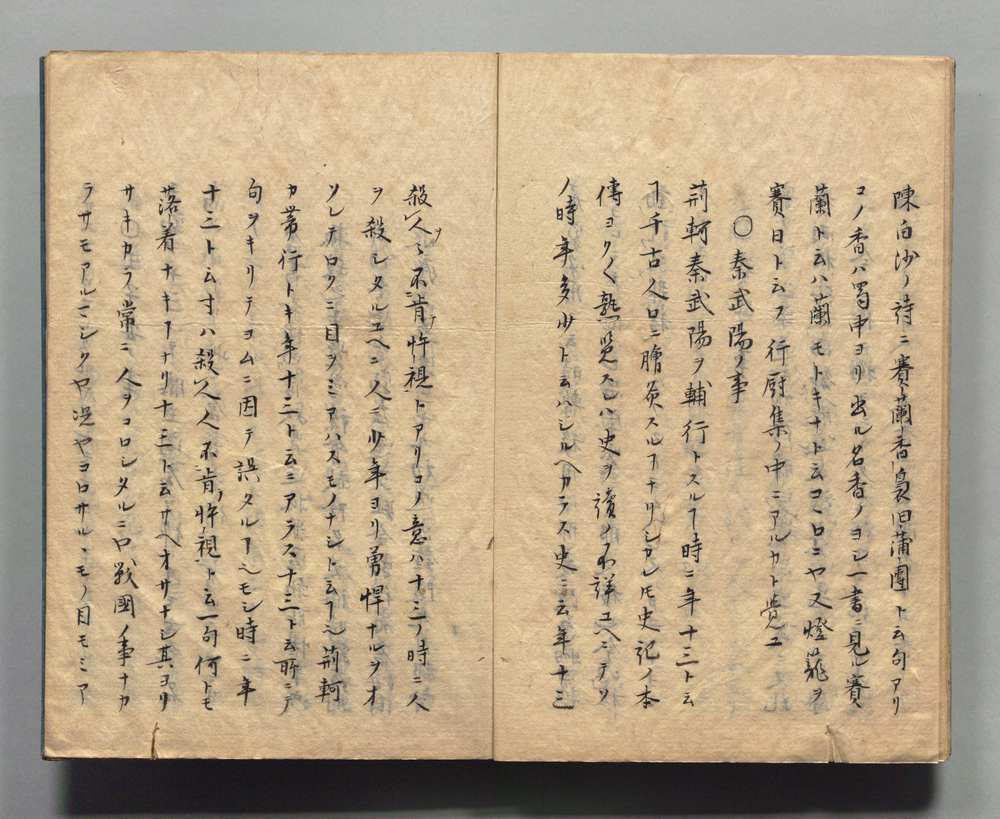 陳白沙ノ詩ニ賽蘭香裊旧蒲團ト云句アリ
コノ香ハ蜀中ヨリ出ル名香ノヨシ一書ニ見ル賽
蘭ト云ハ蘭ニモトキナト云コヽロニヤ又燈籠ヲ
賽日ト云フ行厨集ノ中ニアルカト覺ユ
○秦武陽ノ事
荊軻秦武陽ヲ輔行トスルヿ時ニ年十三ト云
ヿ千古人口ニ膾炙スルヿナリシカレ𪜈史記ノ本
傳ヨク〳〵熟覚スレハ史ヲ讀ノ不詳ユヘニテソ
ノ時年多少ト云ハシルヘカラス史ニ云年十三
殺人〻不肯忤視トアリコノ意ハ十三ノ時ニ人
ヲ殺シタルユヘニ人ニ少年ヨリ勇悍ナルヲオ
ソレテロクニ目ヲミアハスモノナシト云ヿ也荊軻
カ帯行トキ年十三ト云ニアラス十三ト云所ニテ
句ヲキリテヨムニ因テ誤タルヿ也モシ時ニ年
十三ト云寸ハ殺人人不肯忤視ト云一句何トモ
落着ナキヿナリ十三ト云サヘオサナシ其ヨリ
サキカラ常ニ人ヲコロシタルニロ戦國ノ事ナカ
ラサモアルマシクヤ况ヤコロサルヽモノ目モミア